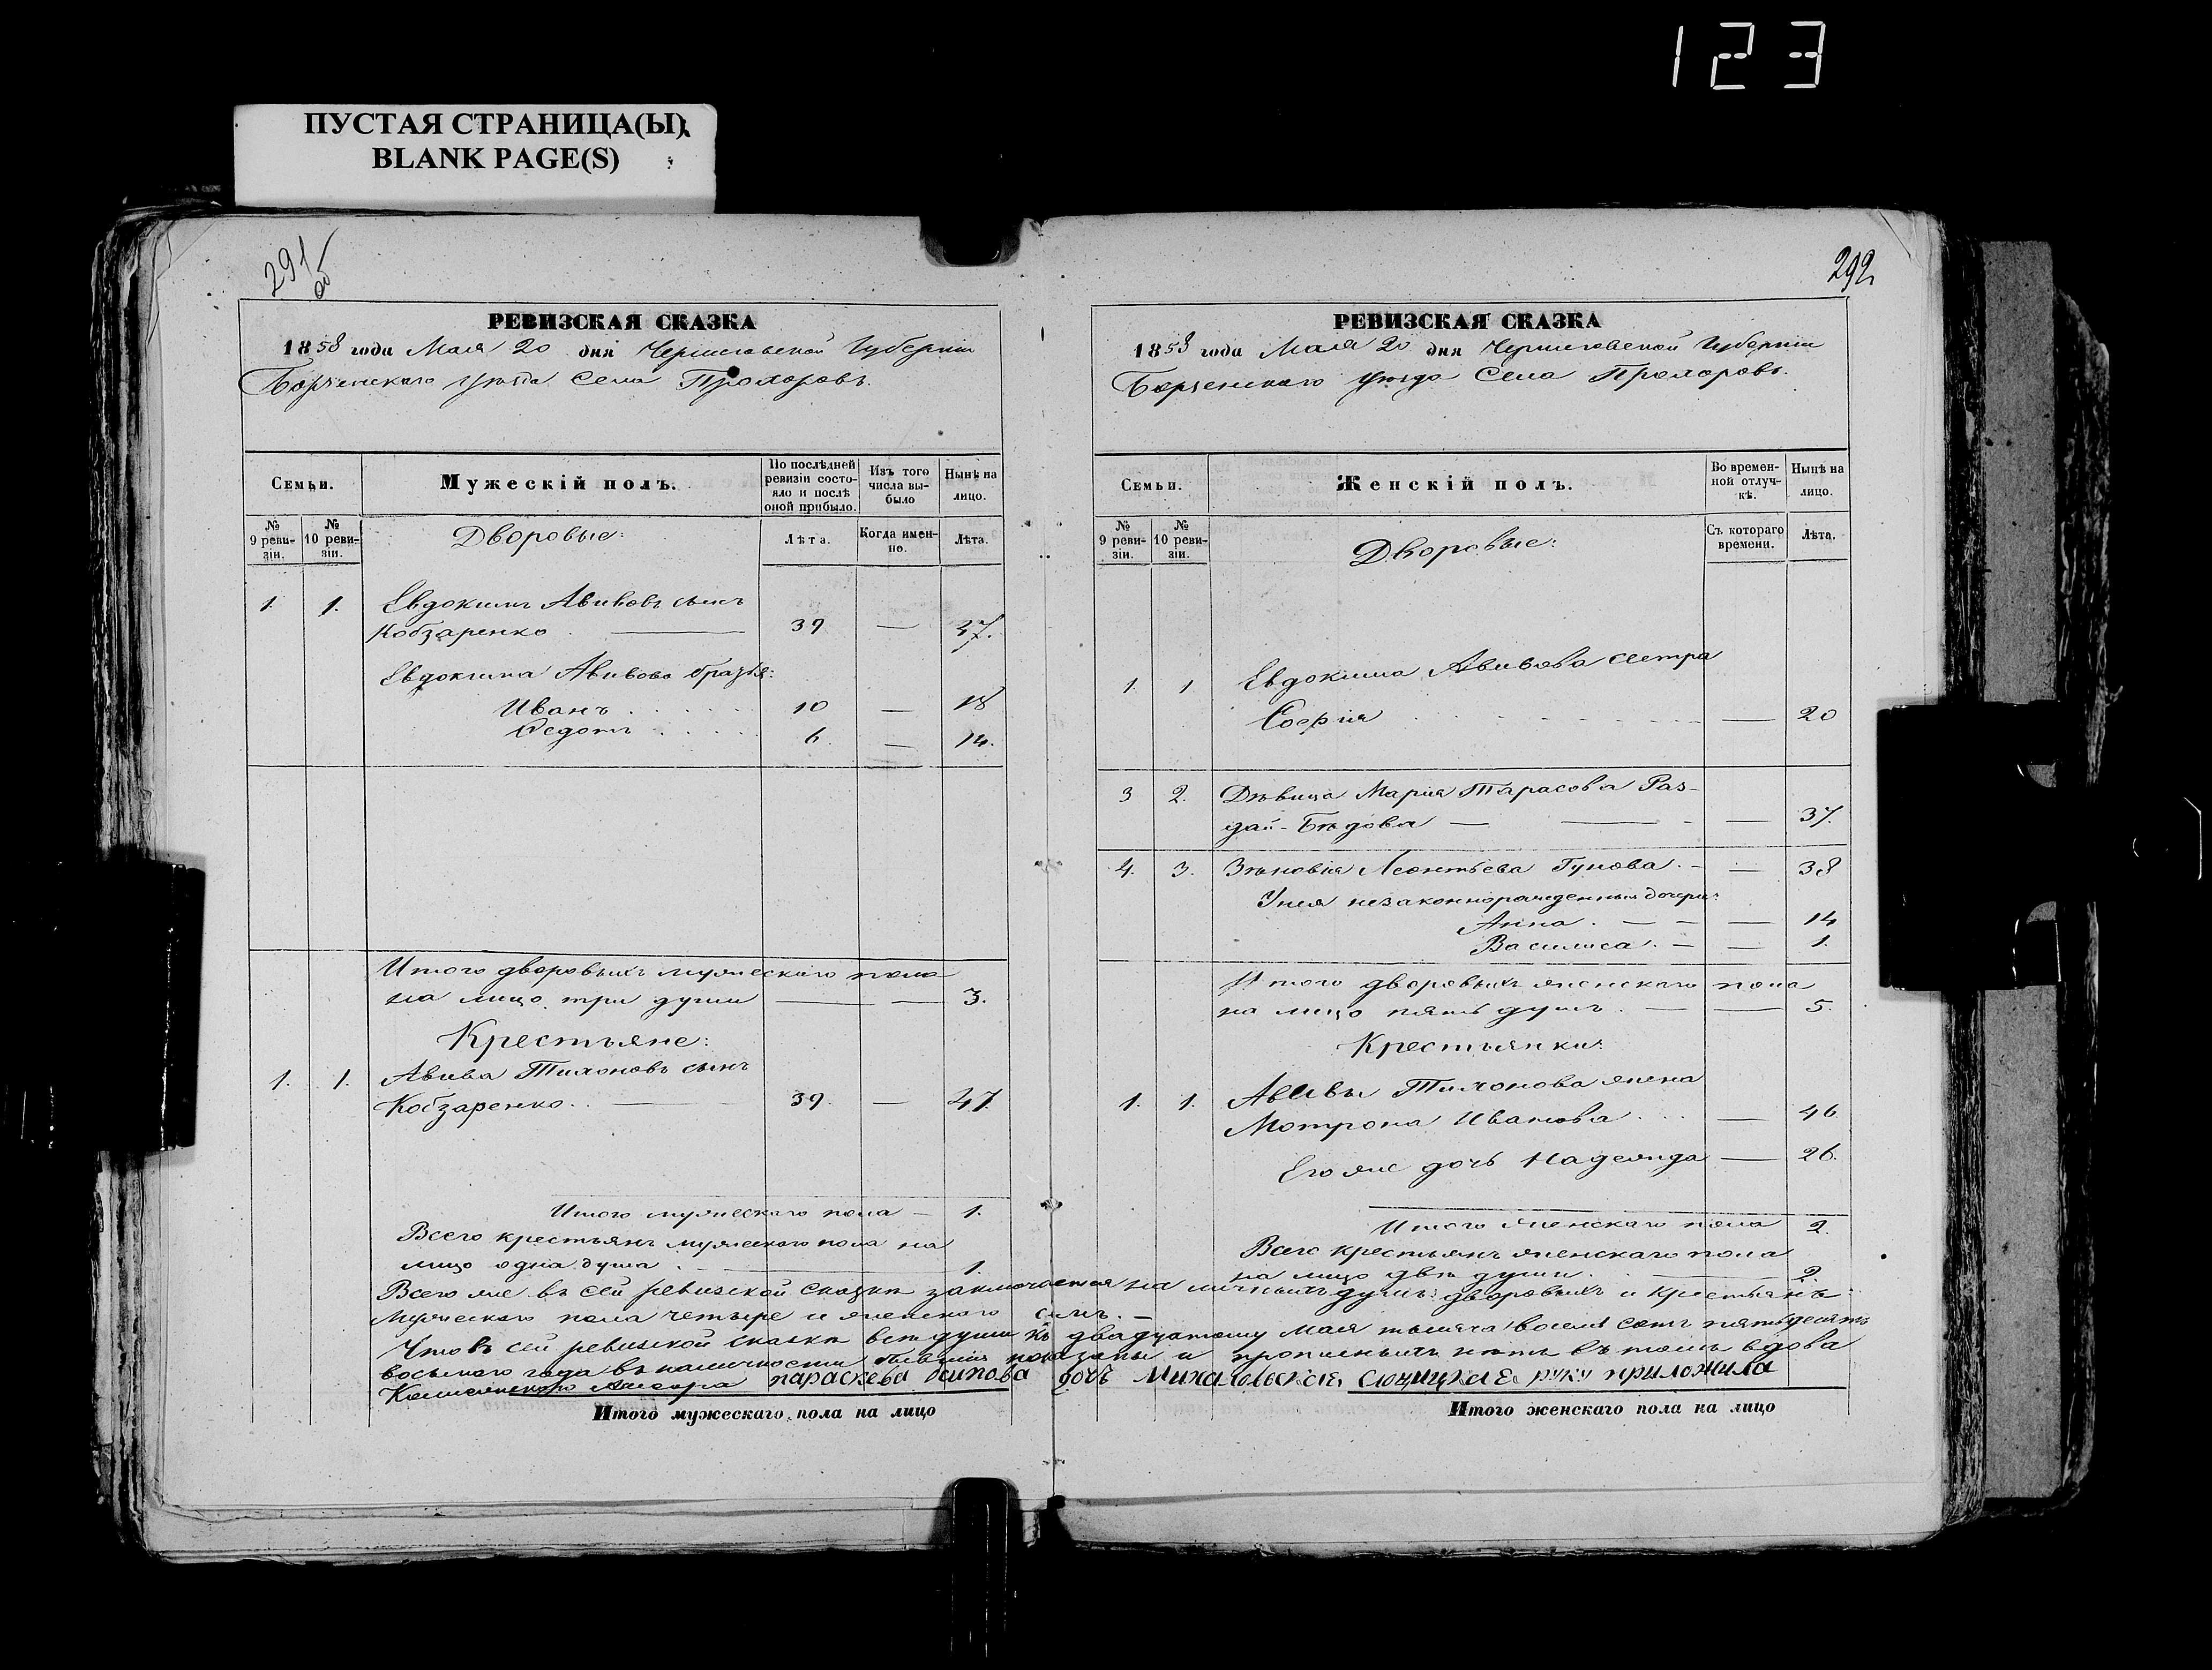 123
ПУСТАЯ СТРАНИЦА(Ы)
BLANK PAGE(S)
291
об
РЕВИЗСКАЯ СКАЗКА
1858 года Мая 20 дня Черниговской Губернiи
Борзенскаго уѣзда Села Прохоровъ.
Семьи.
Мужескiй полъ.
По послѣдней ревизiи состояло и послѣ оной прибыло.
Изъ того числа выбыло
Нынѣ на лицо.
№ 9 ревизiи.
№ 10 ревизiи.
Дворовые:
Лѣта.
Когда именно.
Лѣта.
1. 1. Евдокимъ Авивовъ сынъ
Кобзаренко. — 39 — 47.
Евдокима Авивова братья:
Иванъ . . . . . 10 — 18
Федотъ . . . . 6. — 14.
Итого дворовыхъ мужескаго пола
на лицо три души — — 3.
Крестьяне:
1. 1. Авива Тихоновъ сынъ
Кобзаренко. — 39. — 47.
Итого мужескаго пола — 1.
Всего крестьянъ мужескаго пола на
лицо одна душа . — 1.
292
РЕВИЗСКАЯ СКАЗКА
1858 года Мая 20 дня Черниговской Губернiи
Борзенскаго уѣзда Села Прохоровъ.
Семьи.
Женскiй полъ.
Во временной отлучкѣ.
Нынѣ на лицо.
№ 9 ревизiи.
№ 10 ревизiи.
Дворовые:
Съ котораго времени.
Лѣта.
1. 1 Евдокима Авивова сестра
Софiя — 20
3 2. Дѣвица Марiя Тарасова Раз-
дай-Бѣдова — — — 37.
4. 3. Зѣновiя Леонтьева Гунова. — — 38
У нея незаконнорожденныя дочери:
Анна. — — — 14
Василиса. — — 1.
Итого дворовыхъ женскаго пола
на лицо пять душъ. — — 5.
Крестьянки:
1. 1. Авивы Тихонова жена
Мотрона Иванова . . . — 46
Его же дочь Надежда — 26.
Итого женскаго пола 2.
Всего крестьянъ женскаго пола
на лицо двѣ души. — 2.
Всего же въ сей ревизской сказкѣ заключается на личныхъ душъ: дворовыхъ и крестьянъ:
Мужескаго пола четыре и женского семь. —
Что въ сей ревизской сказкѣ всѣ души къ двадцатому Мая тысяча восемь сотъ пятьдесятъ
восьмого года въ наличности бывшiя показаны и прописныхъ нѣтъ въ томъ вдова
параскева осипова дочь руку приложила
Итого мужескаго пола на лицо
Итого женскаго пола на лицо